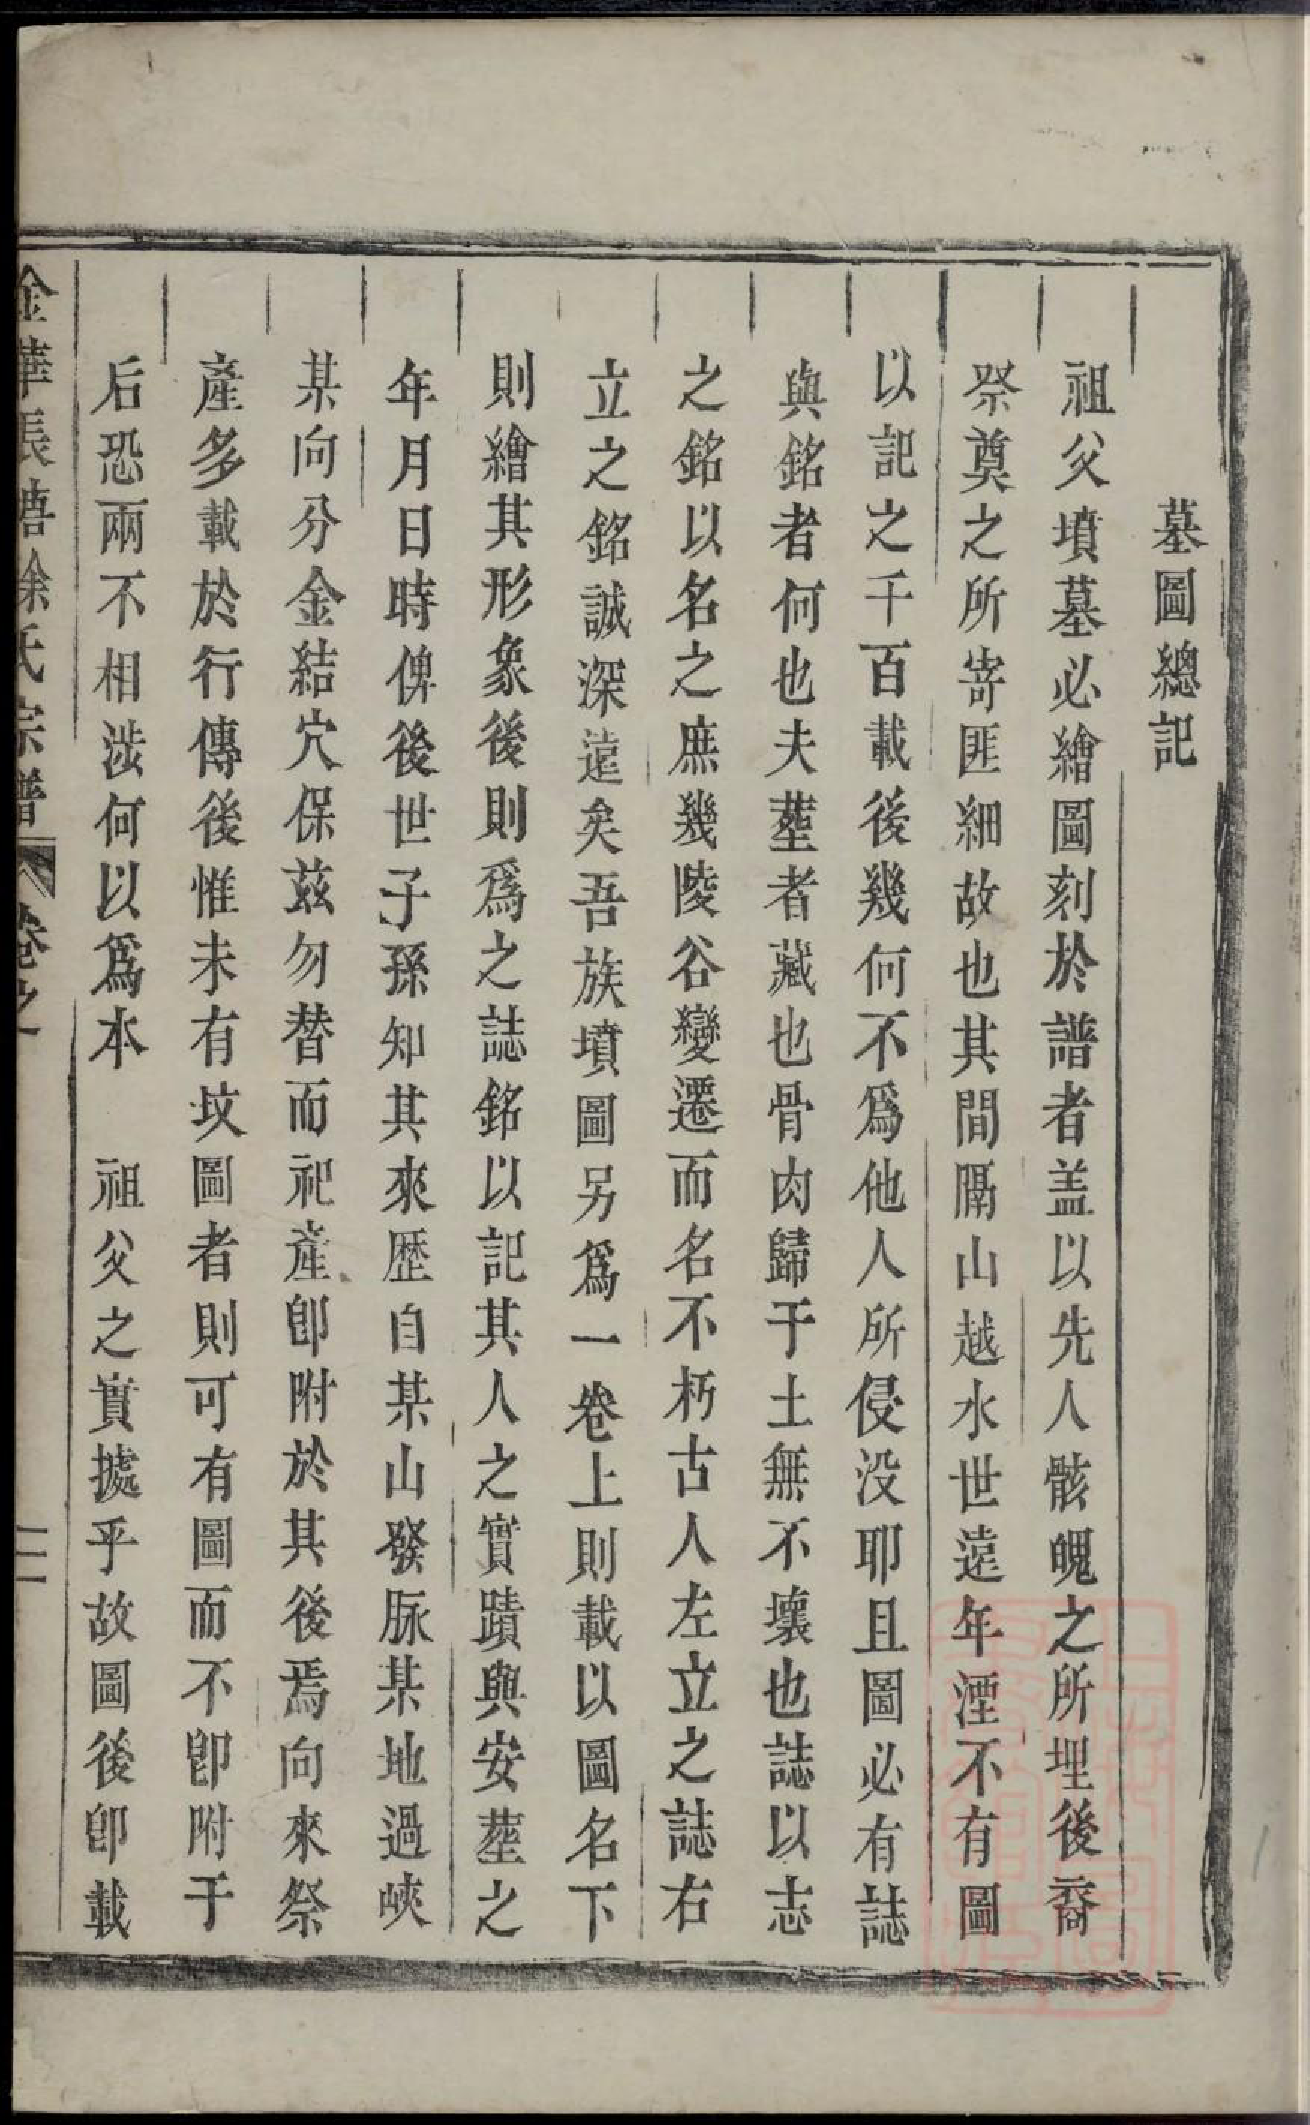 墓圖總記
祖父墳墓必繪圖刻於譜者盖以先人骸魄之所埋後裔
祭奠之所寄匪細故也其間隔山越水世遠年湮不有圖
以記之千百載後幾何不爲他人所侵没耶且圖必有誌
與銘者何也夫塟者藏也骨肉歸于土無不壞也誌以志
之銘以名之庶幾陵谷變遷而名不朽古人左立之誌右
立之銘誠深遠矣吾族墳圖另爲一卷上則載以圖名下
則繪其形象後則爲之誌銘以記其人之實蹟與安塟之
年月日時俾後世子孫知其來歷自某山發脉某地過峽
某向分金結穴保茲勿替而祀產卽附於其後焉向來祭
產多載於行傳後惟未有坟圖者則可有圖而不卽附于
后恐兩不相涉何以爲本　祖父之實據乎故圖後卽載
金華長塘徐氏宗譜 卷之 二